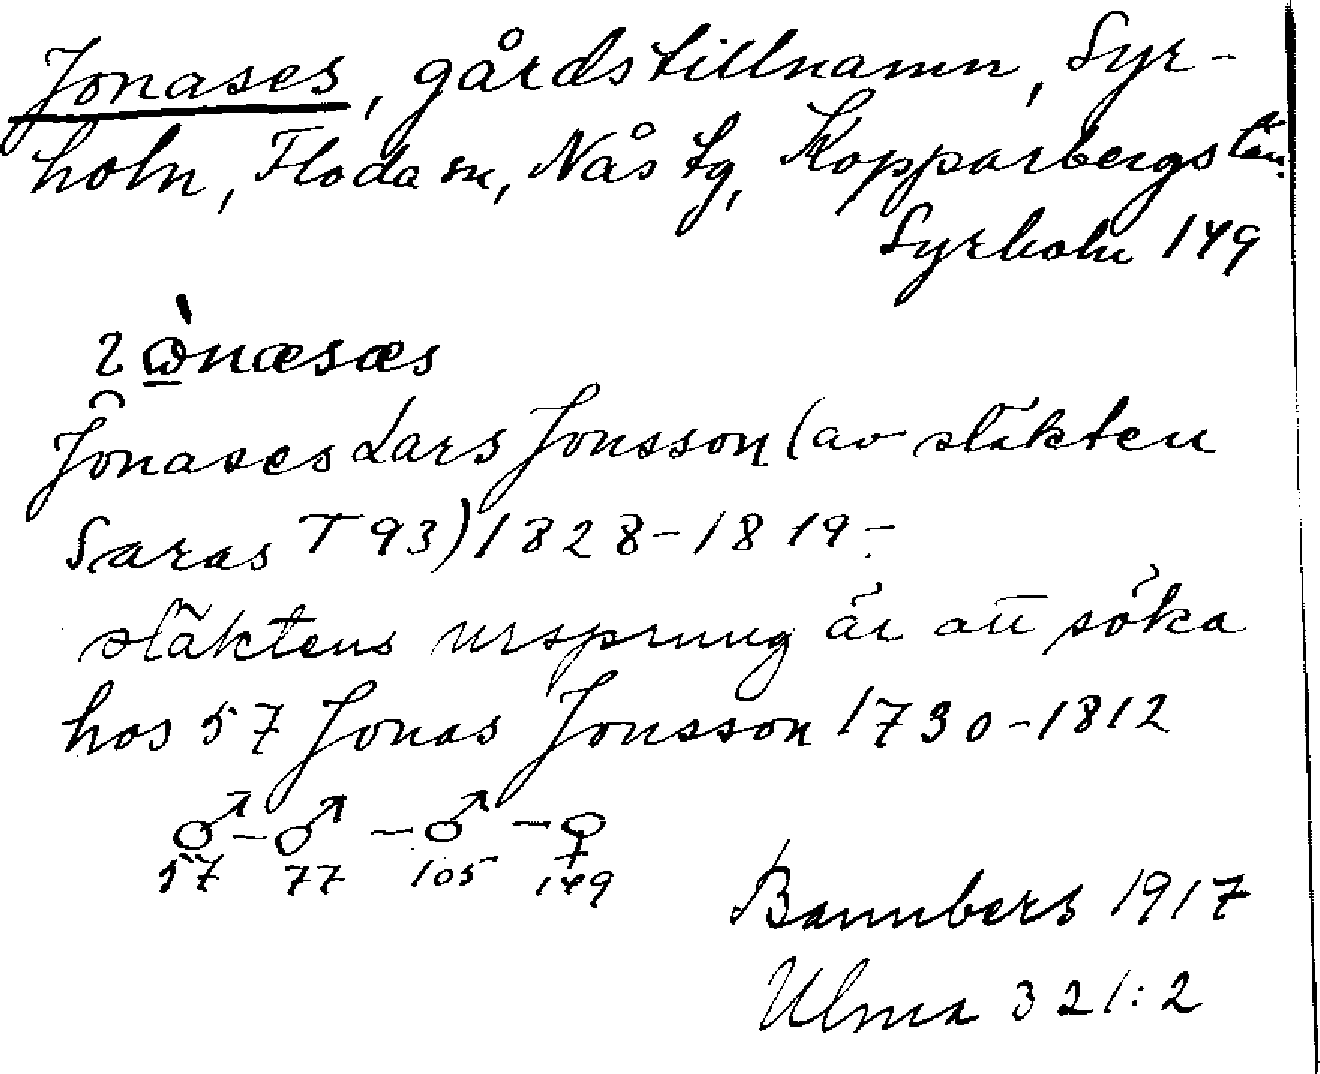 Jonases, gårdstillnamn, Syr-
holn, Floda sn, Nås tg, Kopparbergs län.
Syrholn 149
Jonases Lars Jonsson (av släkten
Saras T 93) 1828-1819-
släktens ursprung är att söka
hos 57 Jonas Jonsson 1730-1812
♂-♂-♂-♀
57 77 105 149
Bannbers 1917
Ulma 321:2